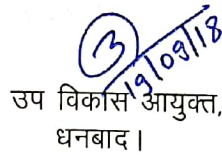 3
19/09/18
उप विकास आयुक्त,
धनबाद।